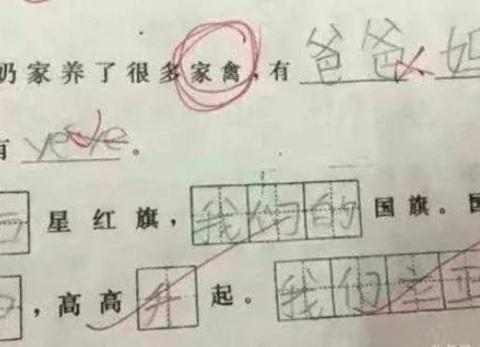 奶家养了很多家禽,有爸爸、妈
有yeye。
五星红旗,我们的国旗。国
,高高升起。我们立正